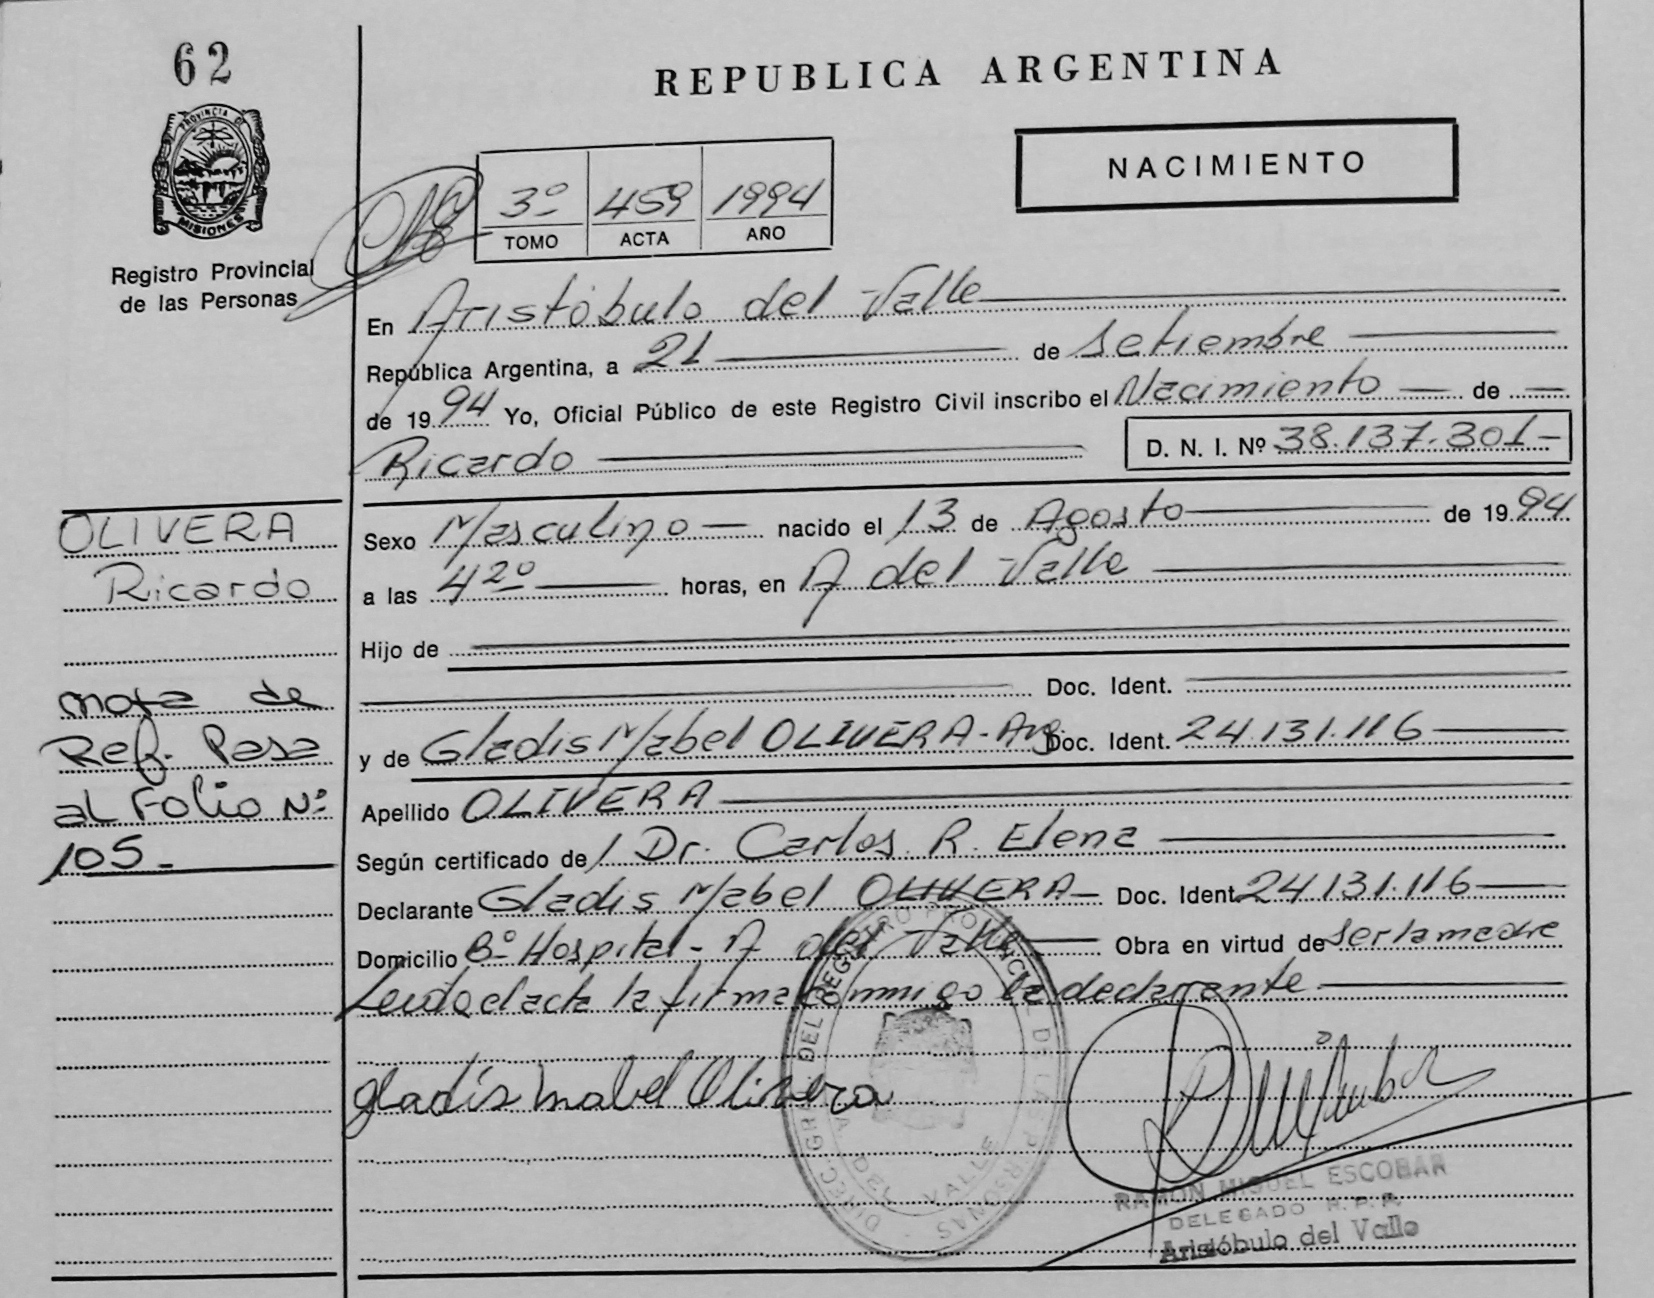 62
REPUBLICA ARGENTINA
PROVINCIA DE
MISIONES
NACIMIENTO
3º 459 1994
TOMO ACTA AÑO
Registro Provincial
de las Personas
En Aristóbulo del Valle
República Argentina, a 21 de Setiembre
de 1994 Yo, Oficial Público de este Registro Civil inscribo el Nacimiento de
Ricardo D. N. I. Nº 38.137.301-
OLIVERA
Ricardo
Sexo Masculino nacido el 13 de Agosto de 1994
a las 4 20 horas, en A del Valle
Hijo de
Doc. Ident.
nota de
Ref. Pasa
al Folio Nº
105-
y de Gladis Mabel OLIVERA-Arg. Doc. Ident. 24.131.116
Apellido OLIVERA
Según certificado de / Dr. Carlos R. Elena
Declarante Gladis Mabel OLIVERA Doc. Ident. 24.131.116
Domicilio Bº Hospital - A del Valle Obra en virtud de ser la madre
Leída el acta la firma conmigo la declarante
Gladis Mabel Olivera
DIREC. GRAL. DEL REGISTRO PROVINCIAL DE LAS PERSONAS
A. DEL VALLE
RAMON MIGUEL ESCOBAR
DELEGADO R. P. P.
Aristóbulo del Valle